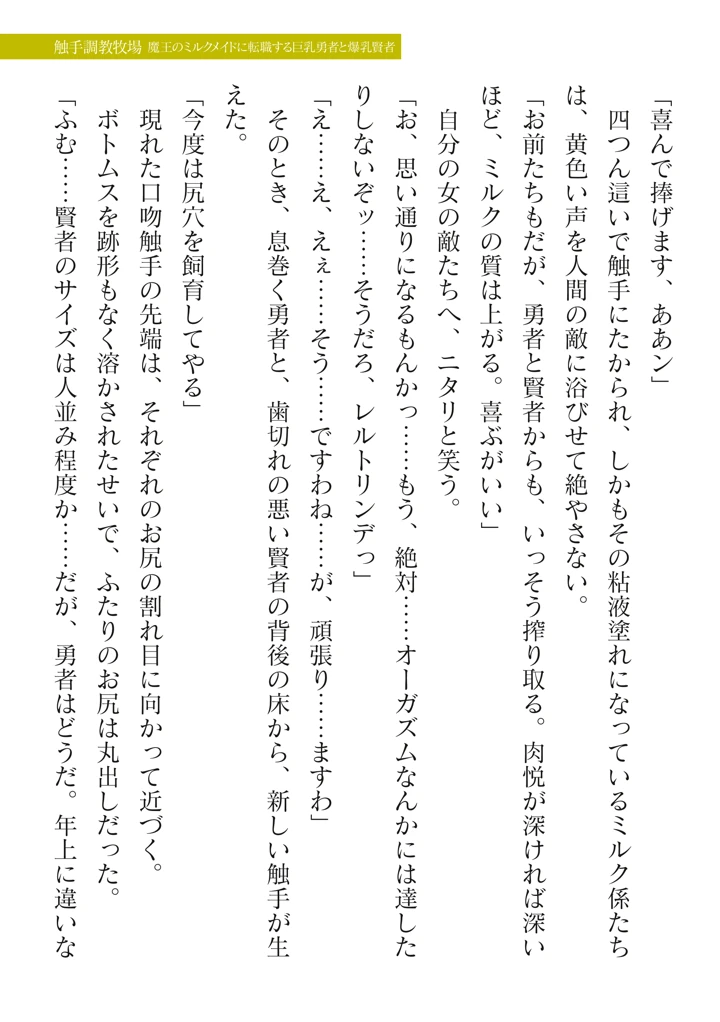 触手調教牧場 魔王のミルクメイドに転職する巨乳勇者と爆乳賢者
「喜んで捧げます、ああン」
　四つん這いで触手にたかられ、しかもその粘液塗れになっているミルク係たち
は、黄色い声を人間の敵に浴びせて絶やさない。
「お前たちもだが、勇者と賢者からも、いっそう搾り取る。肉悦が深ければ深い
ほど、ミルクの質は上がる。喜ぶがいい」
　自分の女の敵たちへ、ニタリと笑う。
「お、思い通りになるもんかっ……もう、絶対……オーガズムなんかには達した
りしないぞッ……そうだろ、レルトリンデっ」
「え……え、えぇ……そう……ですわね……が、頑張り……ますわ」
　そのとき、息巻く勇者と、歯切れの悪い賢者の背後の床から、新しい触手が生
えた。
「今度は尻穴を飼育してやる」
　現れた口吻触手の先端は、それぞれのお尻の割れ目に向かって近づく。
　ボトムスを跡形もなく溶かされたせいで、ふたりのお尻は丸出しだった。
「ふむ……賢者のサイズは人並み程度か……だが、勇者はどうだ。年上に違いな